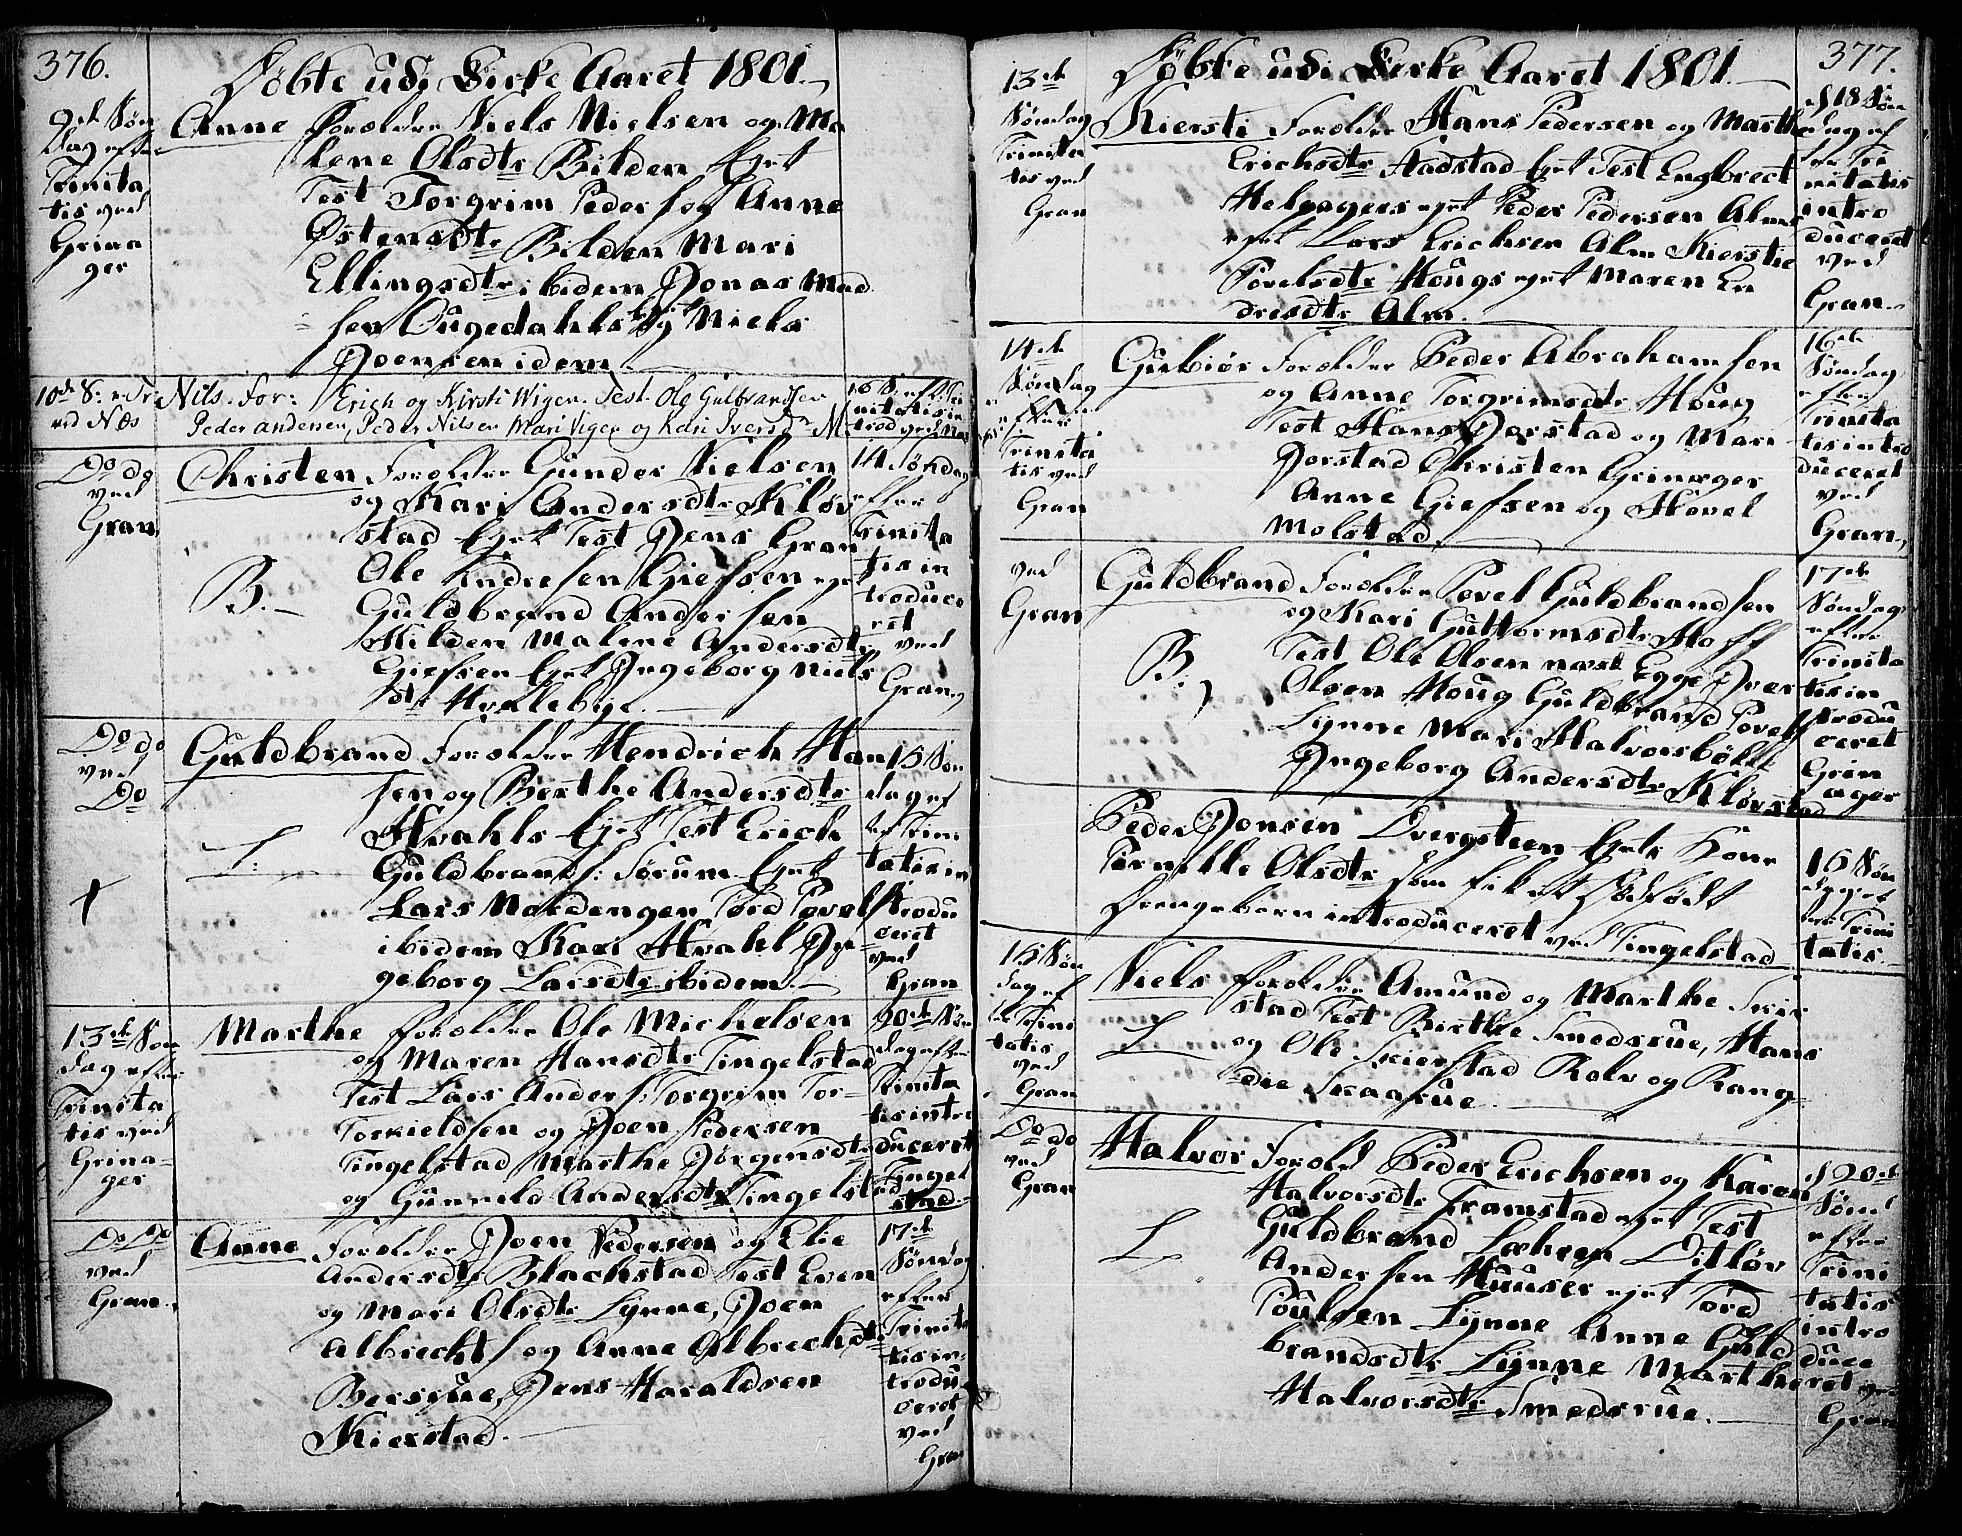 376.
Döbte udi Kirke Aaret 1801.
9de Søn
dag efter
Trinita
tis ved
Grina
ger
Anne Forældre Niels Nielsen og Ma
lene Olsdtr Bilden Ejet
Test Torgrim Peders og Anne
Østensdtr Bilden Mari
Ellingsdtr ibidem Jonas Mad
sen Ougedahls Ejet Niels
Joensen idem
10de S: e: Tr
ved Næs
Nils. For: Erich og Kirsti Wigen. Test. Ole Gulbrandsen
Peder Andersen, Peder Nilsen Mari Vigen og Kari Iversdr
16 S: efter Tri
nitatis in
trod. ved Næs
Do do
ved
Gran
Christen Forældre Gunder Nielsen
og Kari Andersdtr Kløv
stad Ejet Test Jens Gran
Ole Andresen Giefsen ejet
Guldbrand Andersen
Hilden Malene Andersdtr
Giefsen Ejet Ingeborg Niels
dtr Hvalebye.
B.
14 Søndag
efter
Trinita
tis in
troduce
ret
ved
Gran
Do do
ved
Do
Guldbrand Forældre Hendrich Han
sen og Berthe Andersdtr
Hvahls Ejet Test Erich
Guldbrands: Sørum Ejet
Lars Nordengen Tord Povels
ibidem Kari Hvahl In
geborg Larsdtr ibidem.
L:
15 Søn
dag ef
ter Trini
tatis in
trodu
ceret
ved
Gran
13de Søn
dag efter
Trinita
tis ved
Grina-
ger
Marthe Forældre Ole Michelsen
og Maren Hansdtr Tingelstad
Test Lars Anders: Torgrim Tor-
Torkieldsen og Joen Pedersen
Tingelstad Marthe Jørgensdtr
og Gunnild Andersdtr Tingelstad
20de Søn
dag efter
Trinita
tis intro
duceret
Tingel
stad.
Do Do
ved
Gran.
Anne Forældre Joen Pedersen og Elie
Andersdtr Blachstad Test Even
og Mari Olsdtr Lynne, Joen
Albrechts og Anne Albrechtsdtr
Bersrue, Jens Haraldsen
Kierstad.
17de
Søndag
efter
Trinita
tis in-
trodu
ceret
ved
Gran
377.
Döbte udi Kirke Aaret 1801.
13de
Søndag
Trinita
tis ved
Gran
Kiersti Forældre Hans Pedersen og Marthe
Erichsdtr Aadstad Ejet Test Engbrect
Helgagers ejet Peder Pedersen Alms
ejet Lars Erichsen Alm Kierstie
Povelsdtr Hougs ejet Maren En
dresdtr Alm.
d 18 Søn
dag ef
ter Tri
nitatis
intro
duceret
ved
Gran.
14de
Søndag
efter
Trinita
tis ved
Gran
Gubiør Forældre Peder Abrahamsen
og Anne Torgrimsdtr Houg
Test Hans Jorstad og Mari
Jorstad Christen Grinager
Anne Giefsen og Hovel
Molstad.
16de
Søndag
efter
Trinita
tis intro
duceret
ved
Gran,
ved
Gran
Guldbrand Forældre Povel Guldbrandsen
og Kari Guttormsdtr Hoff
Test Ole Olsen næst Egge Iver
Olsen Houg Guldbrand Povels
Lynne Mari Halvorsbølle
Ingeborg Andersdtr Kløvstad
B.
17de
Søndag
efter
Trinita
tis in
trodu
ceret
Grin
ager
Peder Jonsen Dvergsteen Ejets Kone
Pernille Olsdtr som fik et Dødfødt
Drengebarn introduceret ved Tingelstad
15 Søn
dag ef
ter Trini
tatis.
15 Søn
dag ef
ter Trini
tatis
ved
Gran
Niels Forældre Amund og Marthe Skir
stad Test Birthe Smedsrue, Hans
og Ole Skierstad Rolv og Rang
die Skaarue
L
Do do
ved
Gran
Halvor Foræld Peder Erichsen og Karen
Halvorsdtr Framstad ejet Test
Guldbrand Læhren Ditløv
Andersen Huuser ejet Tord
Poulsen Lynne Anne Guld
brandsdtr Lynne Marthe
Halvorsdtr Smedsrue.
L
d 20de
Sønd
efter
Trini
tatis
intro
duce
ret ved
Gran